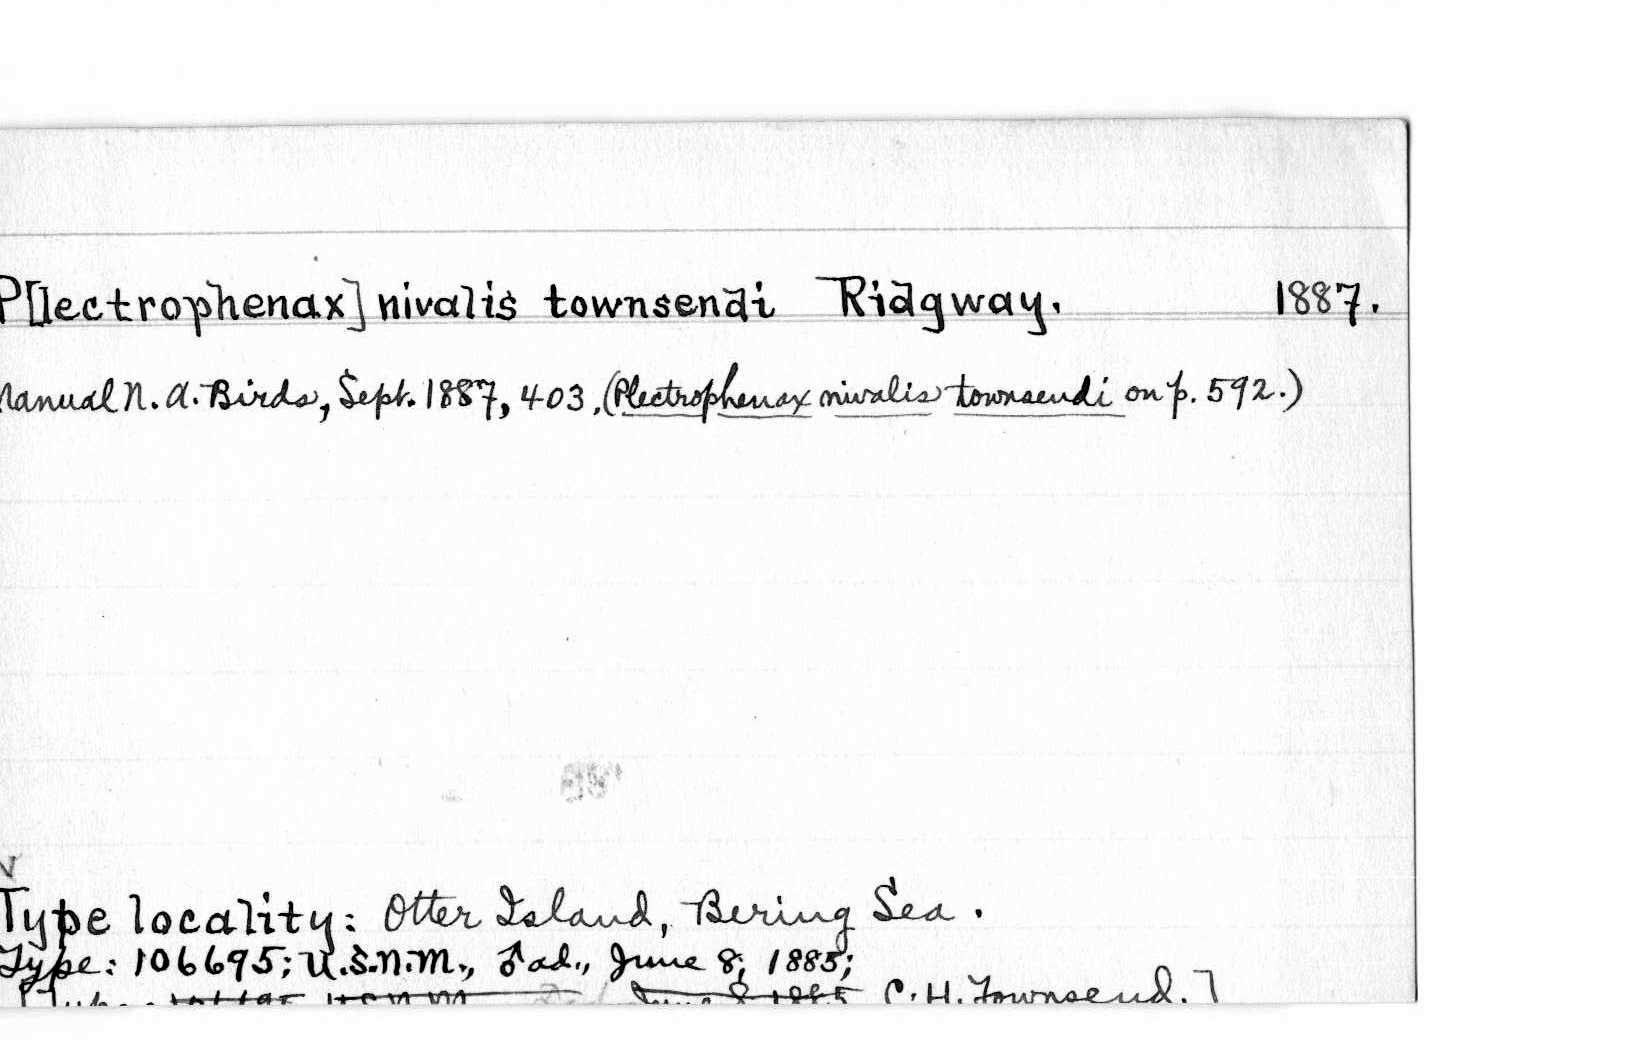 P[lectrophenax] nivalis townsendi Ridgway. 1887.
Manual N. A. Birds, Sept. 1887, 403. (Plectrophenax nivalis townsendi on p. 592.)
Type locality: Otter Island, Bering Sea.
Type: 106695; U.S.N.M., ♂ ad., June 8, 1885;
[Type: 106695 U.S.N.M. June 8 1885 C. H. Townsend.]